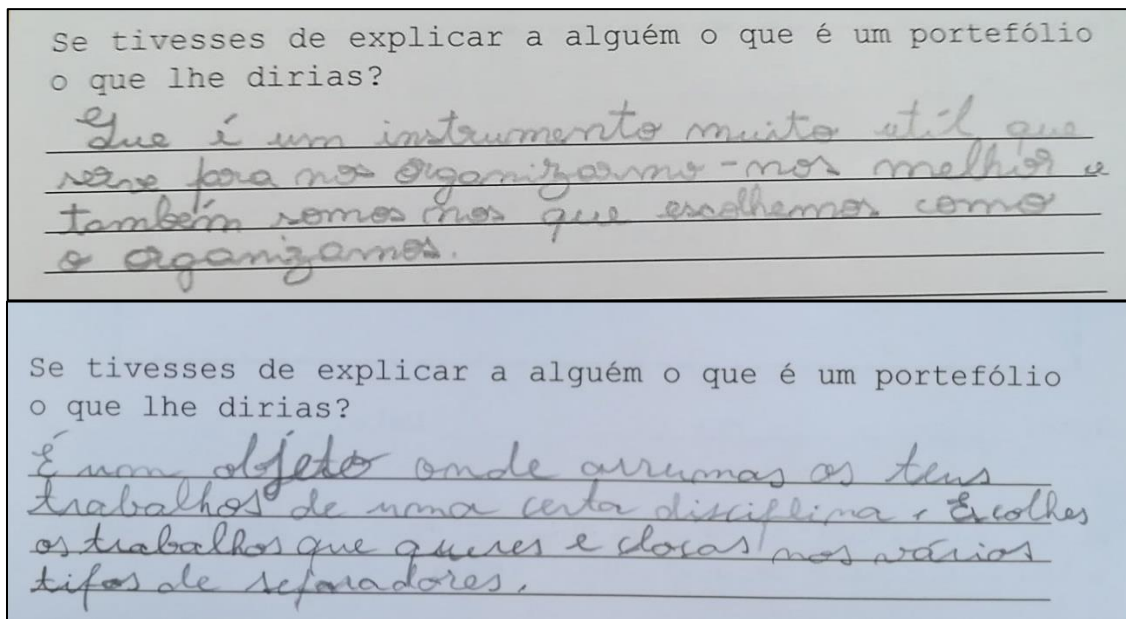 Se tivesses de explicar a alguém o que é um portefólio
o que lhe dirias?
Que é um instrumento muito util que
serve para nos organizarmo-nos melhor e
também somos nos que escolhemos como
o organizamos.
Se tivesses de explicar a alguém o que é um portefólio
o que lhe dirias?
É um objeto onde arrumas os teus
trabalhos de uma certa disciplina, Escolhes
os trabalhos que queres e clocas nos vários
tipos de separadores.